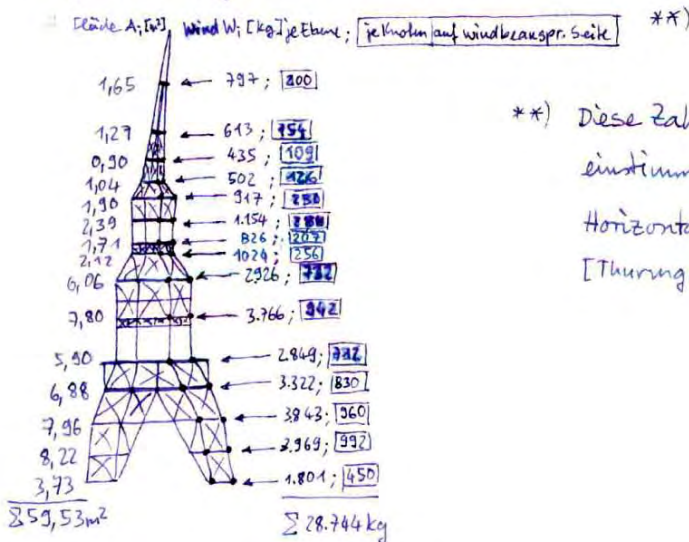 Fläche Aᵢ [m²] Wind Wᵢ [kg] je Ebene; je Knoten auf windbeanspr. Seite **)
1,65 797; 200
1,27 613; 154
0,90 435; 109
1,04 502; 126
1,90 917; 230
2,39 1.154;
1,71 826; 207
2,12 1024; 256
6,06 2926; 732
7,80 3.766; 942
5,90 2.849; 712
6,88 3.322; 830
7,96 3.843; 960
8,22 3.969; 992
3,73 1.801; 450
Σ 59,53 m² Σ 28.744 kg
**) Diese Zah
einstimm
Horizonta
[Thüring